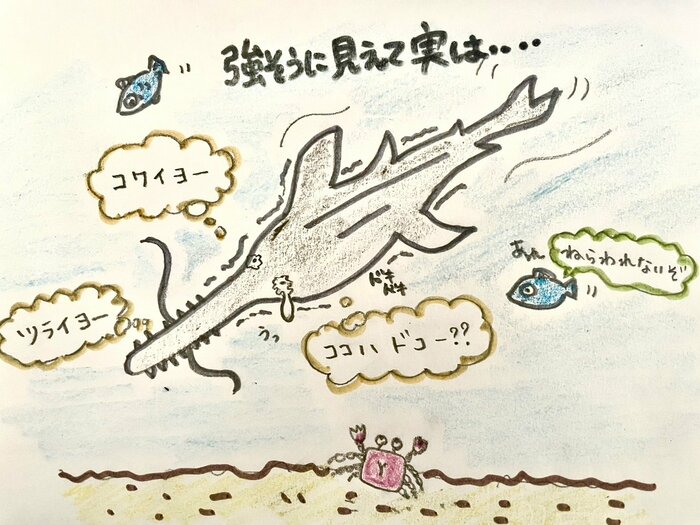 強そうに見えて実は‥‥
コワイヨー
あれ
ねらわれないぞ
ツライヨー
ドキ
ドキ
うっ
ココハ ドコー??